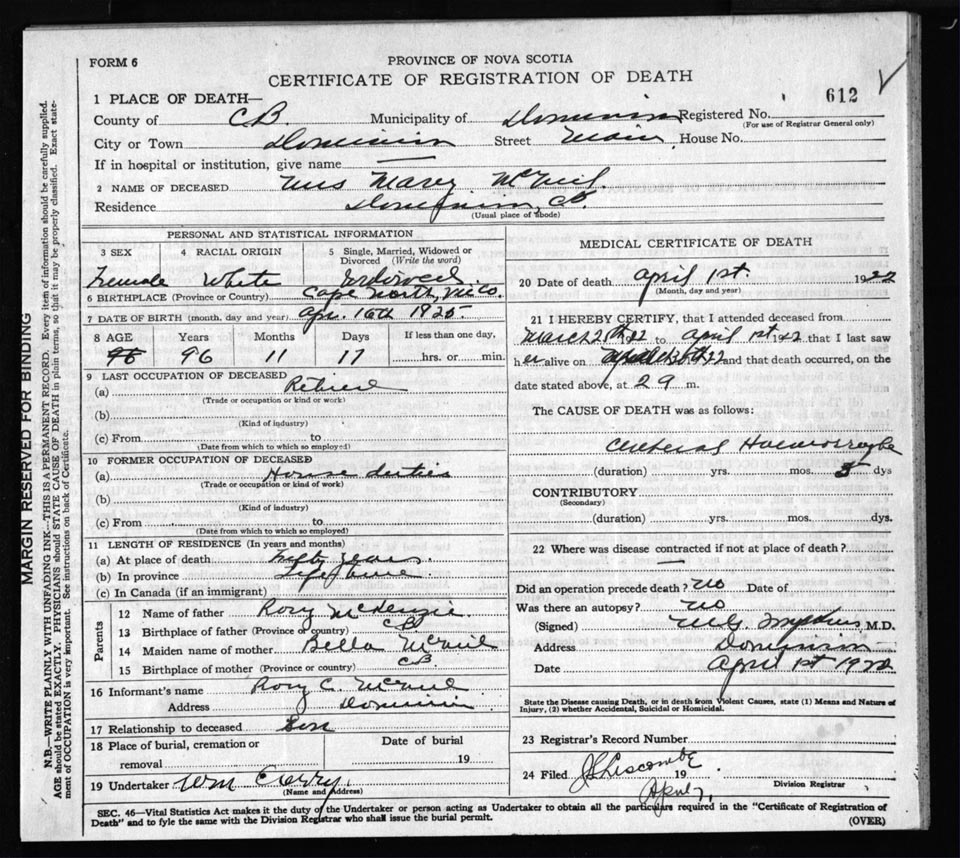 FORM 6
PROVINCE OF NOVA SCOTIA
CERTIFICATE OF REGISTRATION OF DEATH
612
1 PLACE OF DEATH—
County of C.B. Municipality of Dominion Registered No.
(For use of Registrar General only)
City or Town Dominion Street Main House No.
If in hospital or institution, give name —
2 NAME OF DECEASED Mrs Mary McNeil
Residence Dominion, CB.
(Usual place of abode)
PERSONAL AND STATISTICAL INFORMATION
3 SEX 4 RACIAL ORIGIN 5 Single, Married, Widowed or Divorced (Write the word)
Female White Widowed
6 BIRTHPLACE (Province or Country) Cape North, Vic Co.
7 DATE OF BIRTH (month, day and year) Apr. 16th 1925.
8 AGE Years Months Days If less than one day,
96 96 11 17 hrs. or min.
9 LAST OCCUPATION OF DECEASED
(a) Retired
(Trade or occupation or kind or work)
(b)
(Kind of industry)
(c) From to
(Date from which to which so employed)
10 FORMER OCCUPATION OF DECEASED
(a) House duties
(Trade or occupation or kind of work)
(b)
(Kind of industry)
(c) From to
(Date from which to which so employed)
11 LENGTH OF RESIDENCE (In years and months)
(a) At place of death Fifty Years
(b) In province Life time
(c) In Canada (if an immigrant)
Parents
12 Name of father Rory McKenzie
13 Birthplace of father (Province or country) CB
14 Maiden name of mother Bella McNeil
15 Birthplace of mother (Province or country) CB
16 Informant's name Rory C. McNeil
Address Dominion
17 Relationship to deceased Son
18 Place of burial, cremation or Date of burial
removal 19
19 Undertaker Wm Curry
(Name and Address)
MEDICAL CERTIFICATE OF DEATH
20 Date of death April 1st 1922
(Month, day and year)
21 I HEREBY CERTIFY, that I attended deceased from
March 28th 22 to April 1st 1922 that I last saw
her alive on and that death occurred, on the
date stated above, at 2 9 m.
The CAUSE OF DEATH was as follows:
Cerebral Haemorraghe
(duration) yrs. mos. 5 dys
CONTRIBUTORY
(Secondary)
(duration) yrs. mos. dys.
22 Where was disease contracted if not at place of death?
—
Did an operation precede death? No Date of
Was there an autopsy? No
(Signed) M.D.
Address Dominion
Date April 1st 1922
State the Disease causing Death, or in death from Violent Causes, state (1) Means and Nature of
Injury, (2) whether Accidental, Suicidal or Homicidal.
23 Registrar's Record Number
24 Filed J Liscombe 19
April 7, Division Registrar
SEC. 46—Vital Statistics Act makes it the duty of the Undertaker or person acting as Undertaker to obtain all the particulars required in the "Certificate of Registration of
Death" and to fyle the same with the Division Registrar who shall issue the burial permit.
(OVER)
MARGIN RESERVED FOR BINDING
N.B.—WRITE PLAINLY WITH UNFADING INK—THIS IS A PERMANENT RECORD. Every item of information should be carefully supplied.
AGE should be stated EXACTLY. PHYSICIANS should STATE CAUSE OF DEATH in plain terms, so that it may be properly classified. Exact state-
ment of OCCUPATION is very important. See instructions on back of Certificate.